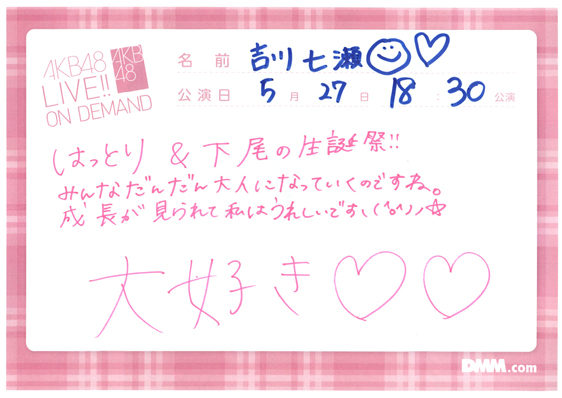 AKB48
LIVE!!
ON DEMAND
AKB
48
名前 吉川七瀬
公演日 5月27日 18:30公演
はっとり & 下尾の生誕祭!!
みんなだんだん大人になっていくのですね。
成長が見られて私はうれしいです、(^o^)ノ☆
大好き♡♡
DMM.com